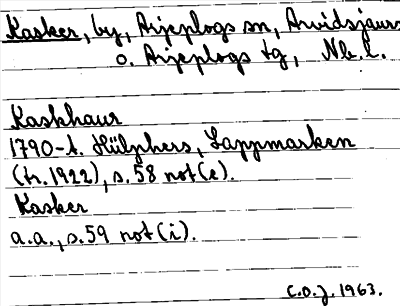 Kasker, by, Arjeplogs sn, Arvidsjaurs
o. Arjeplogs tg, Nb. l.
Kaskhaur
1790-t. Hülphers, Lappmarken
(tr. 1922), s. 58 not (e).
Kasker
a.a., s. 59 not (i).
C.O.J. 1963.